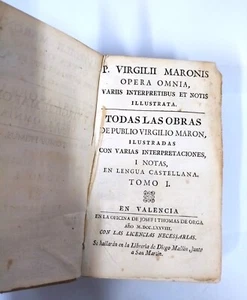 P. VIRGILII MARONIS
OPERA OMNIA,
VARIIS INTERPRETIBUS ET NOTIS
ILLUSTRATA.
TODAS LAS OBRAS
DE PUBLIO VIRGILIO MARON,
ILUSTRADAS
CON VARIAS INTERPRETACIONES,
I NOTAS,
EN LENGUA CASTELLANA.
TOMO I.
EN VALENCIA
EN LA OFICINA DE JOSEF I THOMAS DE ORGA
AÑO M.DCC.LXXVIII.
CON LAS LICENCIAS NECESSARIAS.
Se hallarán en la Librería de Diego Mallén Junto
a San Martin.